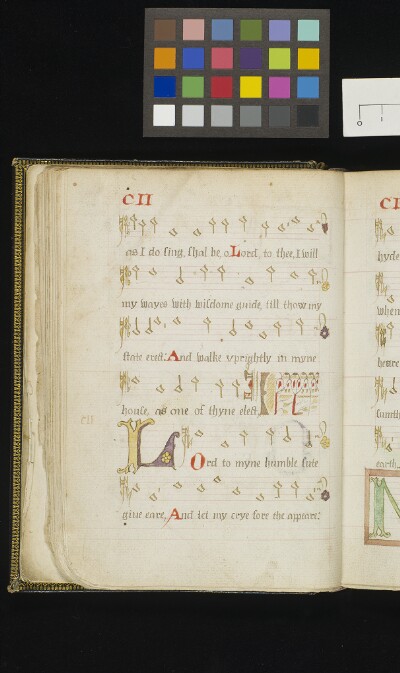 CII
as I do sing, shal be, o Lord, to thee, I will
my wayes with wisdome guide, till thow my
state erect: And walke uprightly in myne
house, as one of thyne elect.
CII
LOrd to myne humble sute
give eare, And let my crye fore the appeare:
CI
hyde
when
heare
earth
N
0 1